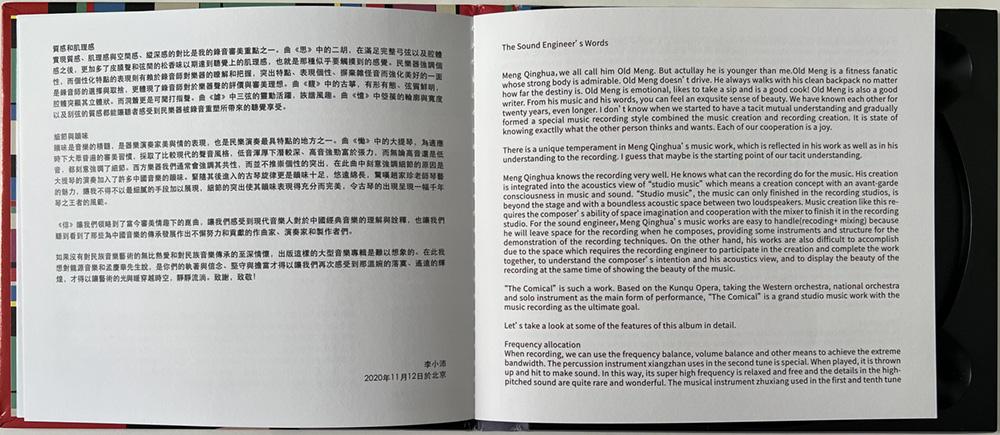 質感和肌理感
實現質感、肌理感與空間感、縱深感的對比是我的錄音審美重點之一。曲《思》中的二胡，在滿足完整弓弦以及腔體
感之後，更加多了皮膜聲和弦間的松香味以期達到聽覺上的肌理感，也就是那種似乎要觸摸到的感覺。民樂器強調個
性，而個性化特點的表現則有賴於錄音師對樂器的瞭解和把握，突出特點、表現個性、摒棄雜怪音而強化美好的一面
是錄音師的選擇與取捨，更體現了錄音師對於樂器聲的評價與審美理想。曲《驥》中的古箏，有形有態、弦質鮮明，
腔體突顯其立體狀。而洞簫更是可聞打指聲。曲《謔》中三弦的靈動活躍，詼諧風趣。曲《憶》中笙簧的輪廓與寬度
以及刮弦的質感都能讓聽者感受到民樂器被錄音重塑所帶來的聽覺享受。
細節與韻味
韻味是音樂的積韻，是器樂演奏家美與情的表現，也是民樂演奏最具特點的地方之一。曲《慟》中的大提琴，為適應
時下大眾普遍的審美習慣，採取了比較現代的聲音風格，低音渾厚下潛較深、高音強勁富於張力，而無論高音還是低
音，都刻意強調了細節。西方樂器我們通常會強調其共性，而並不推崇個性的突出，在此曲中刻意強調細節的原因是
大提琴的演奏加入了許多中國音樂的韻味。緊隨其後進入的古琴旋律更是韻味十足，悠遠綿長，驚嘆趙家珍老師琴藝
的魅力，讓我不得不以最細膩的手段加以展現，細節的突出使其韻味表現得充分而完美，令古琴的出現呈現一幅千年
琴之王者的風範。
《俑》讓我們領略到了當今審美情趣下的崑曲，讓我們感受到現代音樂人對於中國經典音樂的理解與詮釋，也讓我們
聽到看到了那些為中國音樂的傳承發展作出不懈努力和貢獻的作曲家、演奏家和製作者們。
如果沒有對民族音樂藝術的無比熱愛和對民族音樂傳承的至深情懷，出版這樣的大型音樂專輯是難以想象的。在此我
想對龍源音樂和孟慶華先生說，是你們的執著與信念、堅守與擔當才得以讓我們再次感受到那溫婉的落寞、遙遠的輝
煌，才得以讓藝術的光與暖穿越時空，靜靜流淌。致謝，致敬！
李小沛
2020年11月12日於北京
The Sound Engineer's Words
Meng Qinghua, we all call him Old Meng. But actullay he is younger than me.Old Meng is a fitness fanatic
whose strong body is admirable. Old Meng doesn't drive. He always walks with his clean backpack no matter
how far the destiny is. Old Meng is emotional, likes to take a sip and is a good cook! Old Meng is also a good
writer. From his music and his words, you can feel an exqusite sense of beauty. We have known each other for
twenty years, even longer. I don't know when we started to have a tacit mutual understanding and gradually
formed a special music recording style combined the music creation and recording creation. It is state of
knowing exactlly what the other person thinks and wants. Each of our cooperation is a joy.
There is a unique temperament in Meng Qinghua's music work, which is reflected in his work as well as in his
understanding to the recording. I guess that maybe is the starting point of our tacit understanding.
Meng Qinghua knows the recording very well. He knows what can the recording do for the music. His creation
is integrated into the acoustics view of "studio music" which means a creation concept with an avant-garde
consciousness in music and sound. "Studio music", the music can only finished in the recording studios, is
beyond the stage and with a boundless acoustic space between two loudspeakers. Music creation like this re-
quires the composer's ability of space imagination and cooperation with the mixer to finish it in the recording
studio. For the sound engineer, Meng Qinghua's music works are easy to handle(recoding+ mixing) because
he will leave space for the recording when he composes, providing some instruments and structure for the
demonstration of the recording techniques. On the other hand, his works are also difficult to accomplish
due to the space which requires the recording engineer to participate in the creation and complete the work
together, to understand the composer's intention and his acoustics view, and to display the beauty of the
recording at the same time of showing the beauty of the music.
"The Comical" is such a work. Based on the Kunqu Opera, taking the Western orchestra, national orchestra
and solo instrument as the main form of performance, "The Comical" is a grand studio music work with the
music recording as the ultimate goal.
Let's take a look at some of the features of this album in detail.
Frequency allocation
When recording, we can use the frequency balance, volume balance and other means to achieve the extreme
bandwidth. The percussion instrument xiangzhan uses in the second tune is special. When played, it is thrown
up and hit to make sound. In this way, its super high frequency is relaxed and free and the details in the high-
pitched sound are quite rare and wonderful. The musical instrument zhuxiang used in the first and tenth tune